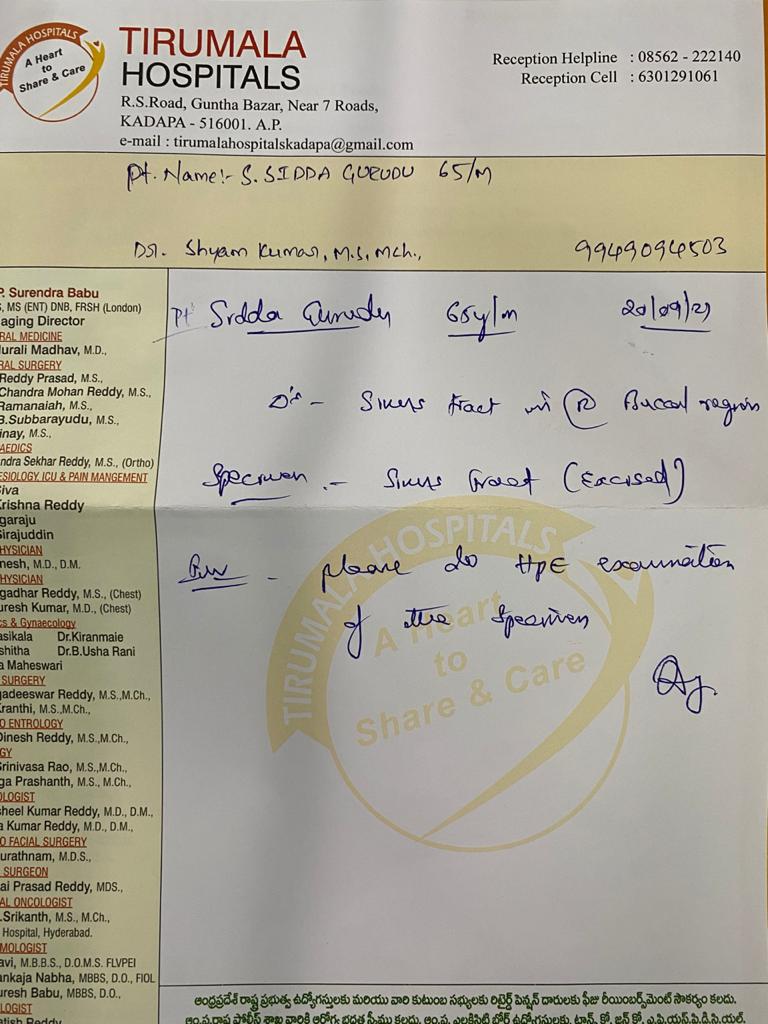 TIRUMALA HOSPITALS
A Heart
to
Share & Care
TIRUMALA
HOSPITALS
R.S.Road, Guntha Bazar, Near 7 Roads,
KADAPA - 516001. A.P.
e-mail : tirumalahospitalskadapa@gmail.com
Reception Helpline : 08562 - 222140
Reception Cell : 6301291061
Pt. Name:- S. SIDDA GURUDU 65/M
Dr. Shyam Kumar, M.S, Mch., 9949094503
P. Surendra Babu
, MS (ENT) DNB, FRSH (London)
aging Director
RAL MEDICINE
urali Madhav, M.D.,
RAL SURGERY
Reddy Prasad, M.S.,
Chandra Mohan Reddy, M.S.,
Ramanaiah, M.S.,
B.Subbarayudu, M.S.,
inay, M.S.,
AEDICS
ndra Sekhar Reddy, M.S., (Ortho)
ESIOLOGY, ICU & PAIN MANGEMENT
iva
Krishna Reddy
garaju
Sirajuddin
HYSICIAN
nesh, M.D., D.M.
HYSICIAN
gadhar Reddy, M.S., (Chest)
uresh Kumar, M.D., (Chest)
cs & Gynaecology
asikala Dr.Kiranmaie
shitha Dr.B.Usha Rani
a Maheswari
SURGERY
gadeeswar Reddy, M.S.,M.Ch.,
Kranthi, M.S.,M.Ch.,
O ENTROLOGY
Dinesh Reddy, M.S.,M.Ch.,
GY
Srinivasa Rao, M.S.,M.Ch.,
ga Prashanth, M.S., M.Ch.,
OLOGIST
sheel Kumar Reddy, M.D., D.M.,
a Kumar Reddy, M.D., D.M.,
O FACIAL SURGERY
urathnam, M.D.S.,
SURGEON
ai Prasad Reddy, MDS.,
AL ONCOLOGIST
.Srikanth, M.S., M.Ch.,
Hospital, Hyderabad.
MOLOGIST
avi, M.B.B.S., D.O.M.S. FLVPEI
ankaja Nabha, MBBS, D.O., FIOL
uresh Babu, MBBS, D.O.,
LOGIST
atish Reddy
Pt Sidda Gurudu 65y/m 20/09/21
D's - Sinus tract in (R) Buccal region
Specimen :- Sinus Tract (Excised)
- please do HPE examination
of the specimen
TIRUMALA HOSPITALS
A Heart
to
Share & Care
ఆంధ్రప్రదేశ్ రాష్ట్ర ప్రభుత్వ ఉద్యోగస్తులకు మరియు వారి కుటుంబ సభ్యులకు రిటైర్డ్ పెన్షన్ దారులకు ఫీజు రీయింబర్స్‌మెంట్ సౌకర్యం కలదు.